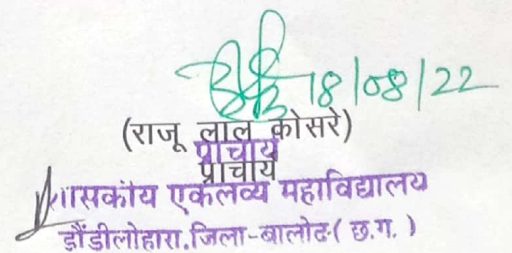 18/08/22
(राजू लाल कोसरे)
प्राचार्य
प्राचार्य
शासकीय एकलव्य महाविद्यालय
डौंडीलोहारा.जिला-बालोद ( छ.ग. )